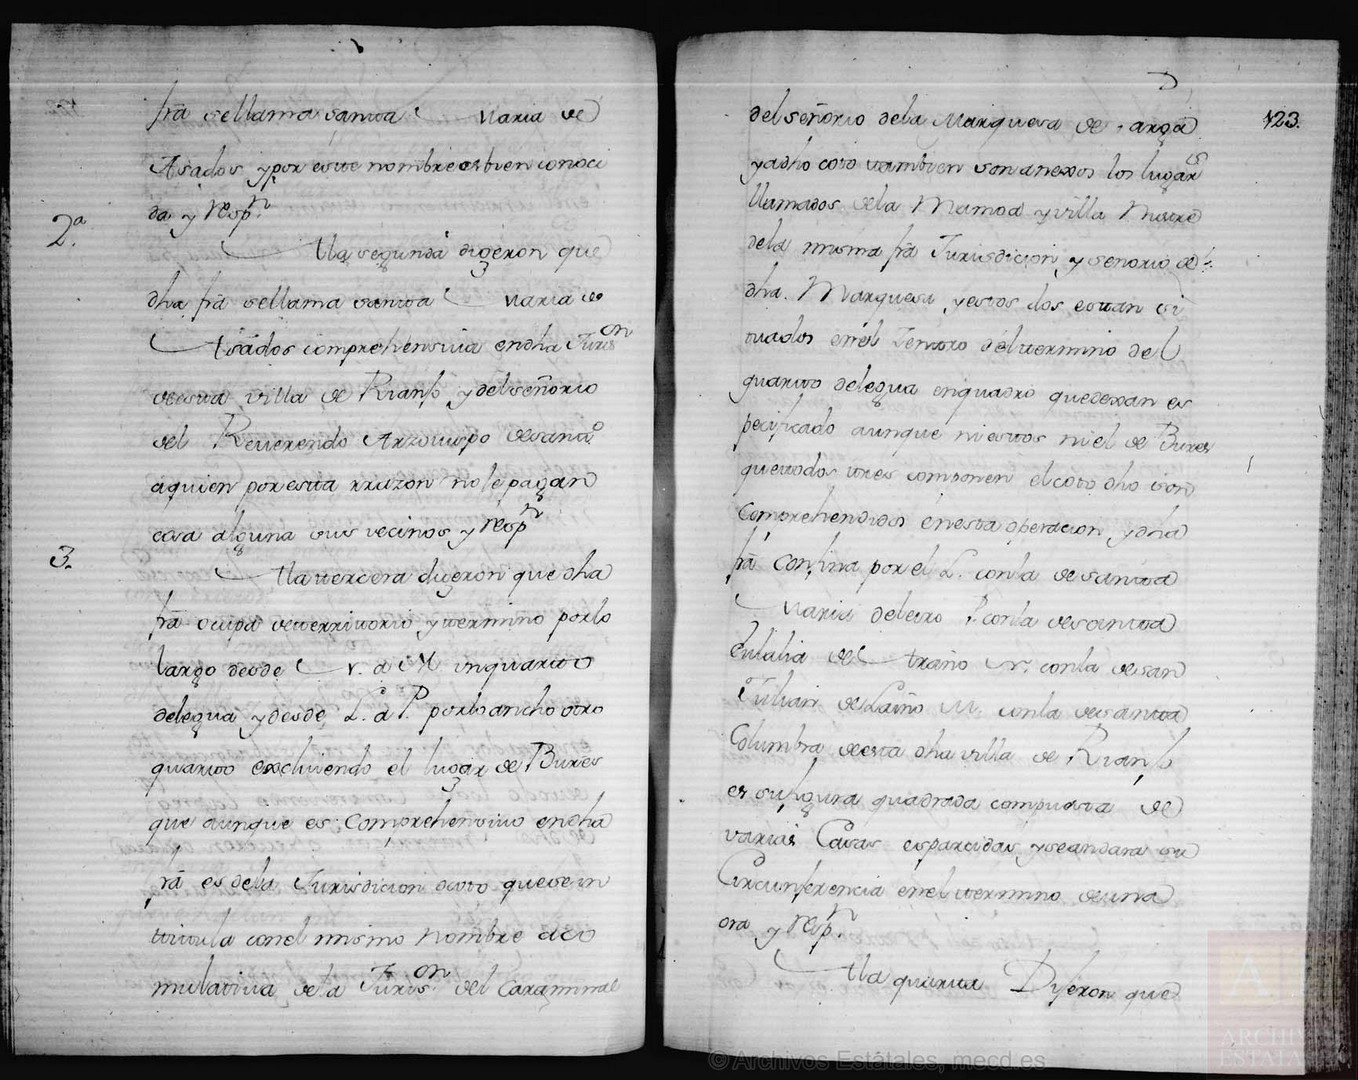 fra se llama Santa Maria de
Asados y por este nombre es bien conoci
da y resp.n
2.a
A la segunda digeron que
dha fra se llama Santa Maria de
Asados comprehensiva en dha Juris.on
de esta villa de Rianjo y del señorio
del Reverendo Arzovispo de Sant.o
a quien por esta rrazon no le pagan
cosa alguna sus vecinos y resp.n
3.
A la tercera digeron que dha
fra ocupa de territorio y termino por lo
largo desde N. a M. un quarto
de legua y desde L. a P. por lo ancho otro
quarto escluiendo el lugar de Bures
que aunque es comprehensivo en dha
fra es de la Jurisdicion o coto que se in
titula con el mismo nombre acu
mulativa de la Juris.on del Caraminal
123.
del señorio de la Marquesa de
y a dho coto tambien son anexos los lugar.es
llamados de la Mamoa y villa Mestre
de la misma fra Jurisdicion y señorio de
dha Marquesa y estos dos estan si
tuados en el Zentro del termino del
quarto de legua en quadro que dexan es
pecificado aunque ni estos ni el de Bures
que todos tres componen el coto dho son
comprehendidos en esta operacion y dha
fra confina por el L. con la de santa
Maria de leiro P. con la de santa
Eulalia de Araño N. con la de san
Julian de Laiño M. con la de santa
Columba de esta dha villa de Rianjo
es su figura quadrada compuesta de
varias Casas esparcidas y se andara su
Circunferencia en el termino de una
ora y resp.n
A la quarta Dijeron que
© Archivos Estatales, mecd.es
ARCHIVOS
ESTATALES